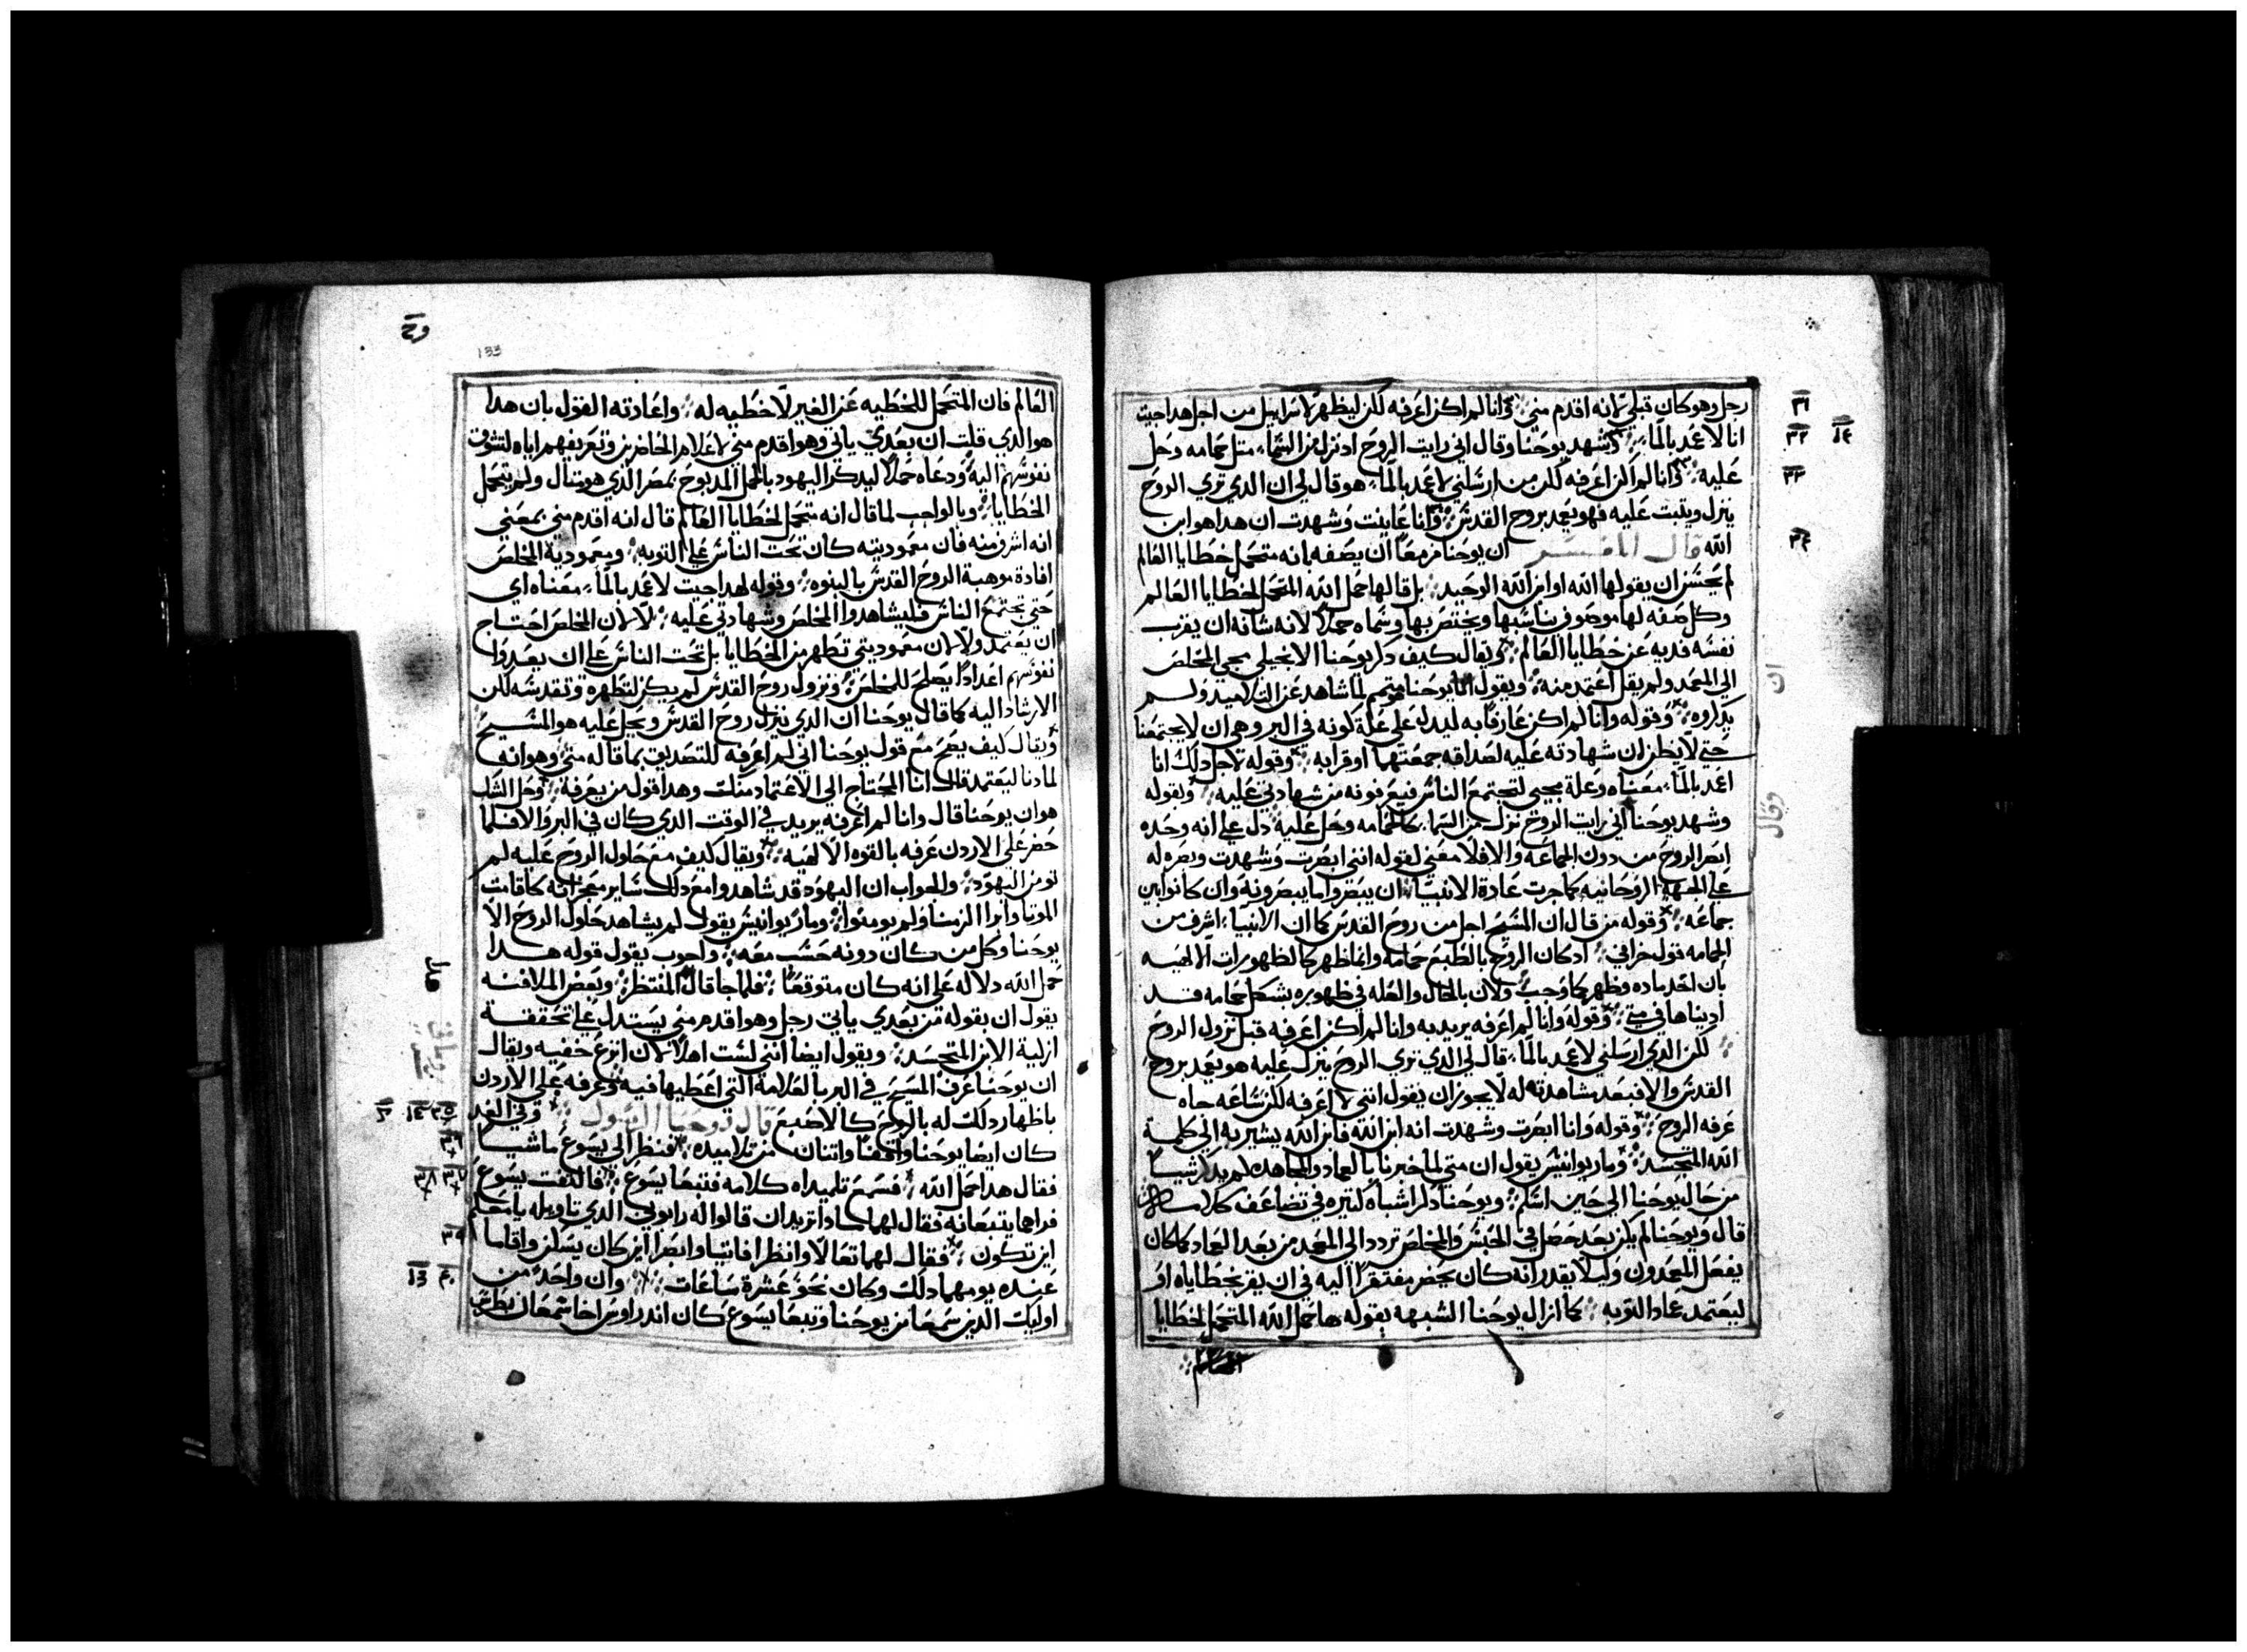 رجل وهو كان قبلي لانه اقدم مني وانا لم اكن اعرفه لكن ليظهر لاسراييل من اجل هدا جيت
انا لاعمد بالماء وشهد يوحنا وقال اني رايت الروح اد نزل من السماء مثل حمامه وحل
عليه وانا لم اكن اعرفه لكن من ارسلني لاعمد بالماء هو قال لي ان الدي تري الروح
ينزل ويتبت عليه فهو يعمد بروح القدس وانا عاينت وشهدت ان هدا هو ابن
الله قال المفسر ان يوحنا مزمعا ان يصفه بانه متحمل خطايا العالم
لم يحسن ان يقول ها الله او ابن الله الوحيد بل قال ها حمل الله المتحمل لخطايا العالم
وكل صفه لها موصوف يناسبها ويختص بها وسماه حملا لانه شانه ان يقرب
نفسه فديه عن خطايا العالم ويقال كيف دكر يوحنا الانجيلي مجي المخلص
الي المعمد ولم يقل اعتمد منه ويقول انما يوحنا متمم لما شاهد عن التلاميد ولم
يدكروه وقوله وانا لم اكن عارفا به ليدل علي علة كونه في البر وهي ان لا يجتمعنا
حتي لا يظن ان شهادته عليه لصداقه جمعتهما او قرابه وقوله لاجل دلك انا
اعمد بالماء معناه وعلة مجيي لتجتمع الناس فيعرفونه من شهادتي عليه وبقوله
وشهد يوحنا اني رايت الروح نزل من السماء كالحمامه وحل عليه دل علي انه وحده
ابصر الروح من دون الجماعه والا فلا معني لقوله انني ابصرت وشهدت وبصره له
علي الجهة الروحانيه كما جرت عادة الانبياء ان يبصروا ما يبصرونه وان كانوا بين
جماعه وقوله من قال ان المسيح اجل من روح القدس كما ان الانبياء اشرف من
الحمامه قول خرافي ادكان الروح بالطبع حمامه وانما ظهر كالظهورات الالهيه
بان اخد ماده وظهر كما وجب ولان بالحال والعله في ظهوره بشكل حمامه قد
اديناها في متي وقوله وانا لم اعرفه يريد به وانا لم اكن اعرفه قبل نزول الروح
لكن الدي ارسلني لاعمد بالماء قال لي الدي تري الروح ينزل عليه هو يعمد بروح
القدس والا فبعد مشاهدته له لا يجوز ان يقول انني لا اعرفه لكن ساعه جاه
عرفه الروح وقوله وانا ابصرت وشهدت انه ابن الله فابن الله يشير به الي كلمة
الله المتجسد ومار يوانيس يقول ان متي لما خبرنا بالعماد والمجاهده لم يدكر شييا
من حال يوحنا الي حين اسلم ويوحنا دكر اشياء كتيره في تضاعف كلامه
قال ويوحنا لم يكن بعد حصل في الحبس والمخلص تردد الي المعمد من بعد العماد كما كان
يفعل المعمدون وليلا يقدر انه كان يحضر مفتقرا اليه في ان يقر بخطاياه او
ليعتمد عماد التوبه كما ازال يوحنا الشبهه بقوله ها حمل الله المتحمل لخطايا
العالم
العالم فان المتحمل للخطيه عن الغير لا خطيه له واعادته القول بان هدا
هو الدي قلت ان بعدي ياتي وهو اقدم مني لاعلام الحاضرين وتعريفهم اياه لتشوق
نفوسهم اليه ودعاه حملا ليدكر اليهود بالحمل المدبوح بمصر الدي هو متال ولم يتحمل
الخطايا وبالواجب لما قال انه متحمل لخطايا العالم قال انه اقدم مني بمعني
انه اشرف منه فان معموديته كان تحت الناس علي التوبه ومعمودية المخلص
افادة موهبة الروح القدس بالبنوه وقوله لهدا جيت لاعمد بالماء معناه اي
حتي تجتمع الناس فليشاهدوا المخلص وشهادتي عليه لا لان المخلص احتاج
ان يعتمد ولا لان معموديتي تطهر من الخطايا بل تحت الناس علي ان يعدوا
نفوسهم اعدادا يصلح للمخلص ونزول روح القدس لم يكن لتطهره وتقدسه لكن
الارشاد اليه كما قال يوحنا ان الدي ينزل روح القدس ويحل عليه هو المسيح
ويقال كيف يصح مع قول يوحنا اني لم اعرفه للتصديق بما قاله متي وهو انه
لما دنا ليعتمد قال انا المحتاج الي الاعتماد منك وهدا قول من يعرفه وحل الشك
هو ان يوحنا قال وانا لم اعرفه يريد في الوقت الدي كان في البر والا فلما
حضر علي الاردن عرفه بالقوه الالهيه ويقال كيف مع حلول الروح عليه لم
تومن اليهود والجواب ان اليهود قد شاهدوا مع دلك ساير معجزاته كاقامت
الموتا وابرا الزمنا ولم يومنوا ومار يوانيس يقول لم يشاهد حلول الروح الا
يوحنا وكل من كان دونه حسب معه واخرون يقول قوله هدا
حمل الله دلاله علي انه كان متوقعا فلما جا قال المنتظر وبعض الملافنه
يقول ان بقوله من بعدي ياتي رجل وهو اقدم مني يستدل علي تحققة
ازلية الابن المتجسد ويقول ايضا انني لست اهلا لان انزع خفيه ويقال
ان يوحنا عرف المسيح في البر بالعلامة التي اعطيها فيه وعرفه علي الاردن
باظهار دلك له بالروح كالاصبع قال يوحنا الرسول وفي الغد
كان ايضا يوحنا واقفا واتنان من تلاميده فنظر الي يسوع ماشيا
فقال هدا حمل الله فسمع تلميداه كلامه فتبعا يسوع فالتفت يسوع
فراهما يتبعانه فقال لهما مادا تريدان قالوا له رابوني الدي تاويله يا معلم
اين تكون فقال لهما تعالا وانظرا فاتيا وابصرا اين كان يسكن واقاما
عنده يومهما دلك وكان نحو عشرة ساعات وان واحد من
اوليك الدين سمعا من يوحنا وتبعا يسوع كان اندراوس اخا شمعان بطرس